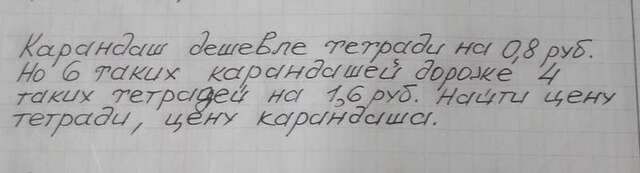 Карандаш дешевле тетради на 0,8 руб.
Но 6 таких карандашей дороже 4
таких тетрадей на 1,6 руб. Найти цену
тетради, цену карандаша.